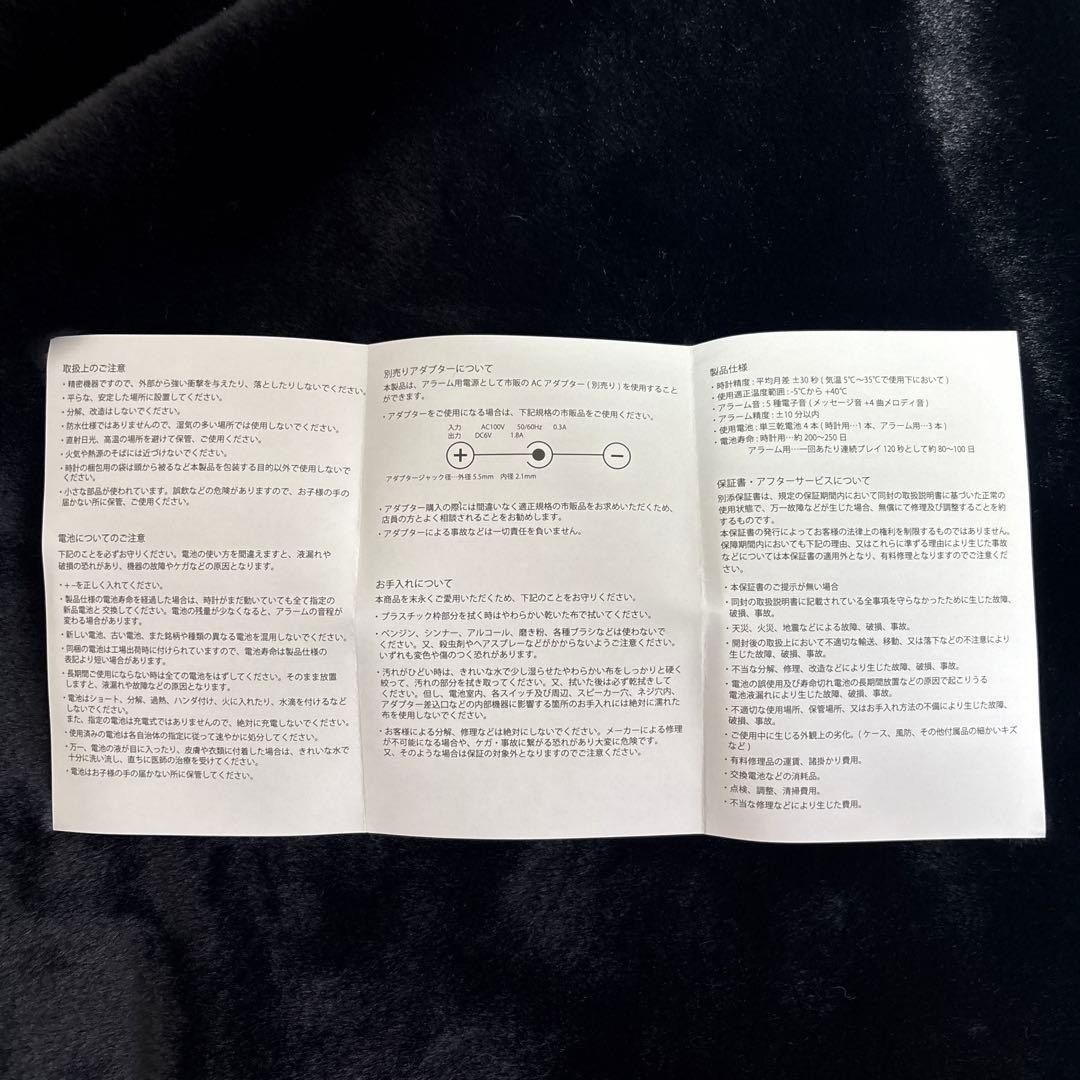 取扱上のご注意
・精密機器ですので、外部から強い衝撃を与えたり、落としたりしないでください。
・平らな、安定した場所に設置してください。
・分解、改造はしないでください。
・防水仕様ではありませんので、湿気の多い場所では使用しないでください。
・直射日光、高温の場所を避けて保管、ご使用ください。
・火気や熱源のそばには近づけないでください。
・時計の梱包用の袋は頭から被るなど本製品を包装する目的以外で使用しないで
ください。
・小さな部品が使われています。誤飲などの危険がありますので、お子様の手の
届かない所に保管、ご使用ください。
電池についてのご注意
下記のことを必ずお守りください。電池の使い方を間違えますと、液漏れや
破損の恐れがあり、機器の故障やケガなどの原因となります。
・+ −を正しく入れてください。
・製品仕様の電池寿命を経過した場合は、時計がまだ動いていても全て指定の
新品電池と交換してください。電池の残量が少なくなると、アラームの音程が
変わる場合があります。
・新しい電池、古い電池、また銘柄や種類の異なる電池を混用しないでください。
・同梱の電池は工場出荷時に付けられていますので、電池寿命は製品仕様の
表記より短い場合があります。
・長期間ご使用にならない時は全ての電池をはずしてください。そのまま放置
しますと、液漏れや故障などの原因となります。
・電池はショート、分解、過熱、ハンダ付け、火に入れたり、水滴を付けるなど
しないでください。
また、指定の電池は充電式ではありませんので、絶対に充電しないでください。
・使用済みの電池は各自治体の指定に従って速やかに処分してください。
・万一、電池の液が目に入ったり、皮膚や衣類に付着した場合は、きれいな水で
十分に洗い流し、直ちに医師の治療を受けてください。
・電池はお子様の手の届かない所に保管してください。
別売りアダプターについて
本製品は、アラーム用電源として市販の AC アダプター ( 別売り ) を使用すること
ができます。
・アダプターをご使用になる場合は、下記規格の市販品をご使用ください。
入力 AC100V 50/60Hz 0.3A
出力 DC6V 1.8A
+ −
アダプタージャック径…外径 5.5mm 内径 2.1mm
・アダプター購入の際には間違いなく適正規格の市販品をお求めいただくため、
店員の方とよく相談されることをお勧めします。
・アダプターによる事故などは一切責任を負いません。
お手入れについて
本商品を末永くご愛用いただくため、下記のことをお守りください。
・プラスチック枠部分を拭く時はやわらかい乾いた布で拭いてください。
・ベンジン、シンナー、アルコール、磨き粉、各種ブラシなどは使わないで
ください。又、殺虫剤やヘアスプレーなどがかからないようご注意ください。
いずれも変色や傷のつく恐れがあります。
・汚れがひどい時は、きれいな水で少し湿らせたやわらかい布をしっかりと硬く
絞って、汚れの部分を拭き取ってください。又、拭いた後は必ず乾拭きして
ください。但し、電池室内、各スイッチ及び周辺、スピーカー穴、ネジ穴内、
アダプター差込口などの内部機器に影響する箇所のお手入れには絶対に濡れた
布を使用しないでください。
・お客様による分解、修理などは絶対にしないでください。メーカーによる修理
が不可能になる場合や、ケガ・事故に繋がる恐れがあり大変に危険です。
又、そのような場合は保証の対象外となりますのでご注意ください。
製品仕様
・時計精度 : 平均月差 ±30 秒 ( 気温 5℃〜35℃で使用下において )
・使用適正温度範囲 : -5℃から +40℃
・アラーム音 : 5 種電子音 ( メッセージ音 +4 曲メロディ音 )
・アラーム精度 : ±10 分以内
・使用電池 : 単三乾電池 4 本 ( 時計用…1 本、アラーム用…3 本 )
・電池寿命 : 時計用…約 200〜250 日
アラーム用…一回あたり連続プレイ 120 秒として約 80〜100 日
保証書・アフターサービスについて
別添保証書は、規定の保証期間内において同封の取扱説明書に基づいた正常の
使用状態で、万一故障などが生じた場合、無償にて修理及び調整することを約
するものです。
本保証書の発行によってお客様の法律上の権利を制限するものではありません。
保障期間内においても下記の理由、又はこれらに準ずる理由により生じた事故
などについては本保証書の適用外となり、有料修理となりますのでご注意くださ
い。
・本保証書のご提示が無い場合
・同封の取扱説明書に記載されている全事項を守らなかったために生じた故障、
破損、事故。
・天災、火災、地震などによる故障、破損、事故。
・開封後の取扱上において不適切な輸送、移動、又は落下などの不注意により
生じた故障、破損、事故。
・不当な分解、修理、改造などにより生じた故障、破損、事故。
・電池の誤使用及び寿命切れ電池の長期間放置などの原因で起こりうる
電池液漏れにより生じた故障、破損、事故。
・不適切な使用場所、保管場所、又はお手入れ方法の不備により生じた故障、
破損、事故。
・ご使用中に生じる外観上の劣化。( ケース、風防、その他付属品の細かいキズ
など )
・有料修理品の運賃、諸掛かり費用。
・交換電池などの消耗品。
・点検、調整、清掃費用。
・不当な修理などにより生じた費用。